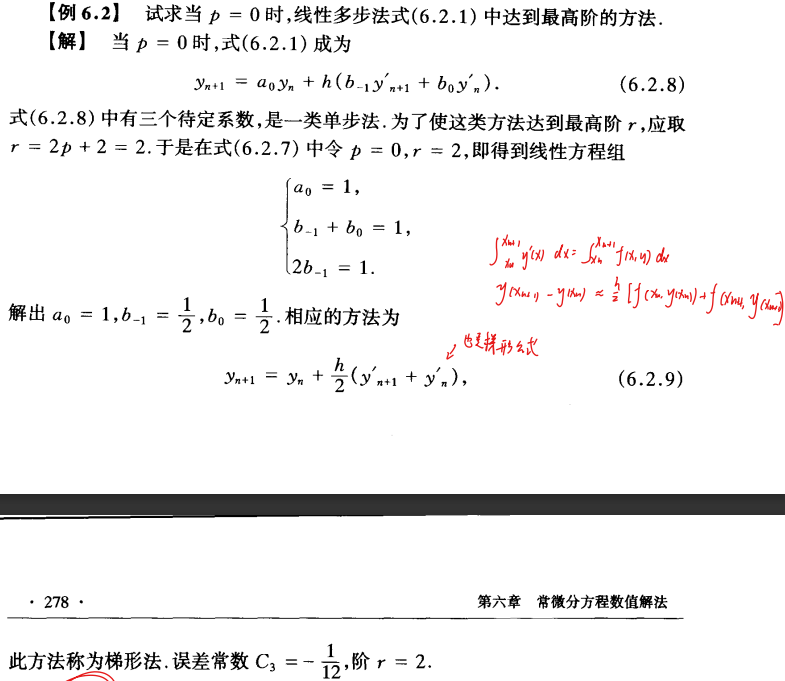 【例 6.2】 试求当 p = 0 时,线性多步法式(6.2.1) 中达到最高阶的方法.
【解】 当 p = 0 时,式(6.2.1) 成为
yₙ₊₁ = a₀yₙ + h(b₋₁y′ₙ₊₁ + b₀y′ₙ). (6.2.8)
式(6.2.8) 中有三个待定系数,是一类单步法.为了使这类方法达到最高阶 r,应取
r = 2p + 2 = 2.于是在式(6.2.7) 中令 p = 0,r = 2,即得到线性方程组
a₀ = 1,
b₋₁ + b₀ = 1,
2b₋₁ = 1.
∫ₓₙ^xₙ₊₁ y′(x) dx = ∫ₓₙ^xₙ₊₁ f(x,y) dx
y(xₙ₊₁) - y(xₙ) ≈ h/2 [f(xₙ, y(xₙ)) + f(xₙ₊₁, y(xₙ₊₁))]
解出 a₀ = 1,b₋₁ = 1/2,b₀ = 1/2.相应的方法为
也是梯形公式
yₙ₊₁ = yₙ + h/2(y′ₙ₊₁ + y′ₙ), (6.2.9)
· 278 · 第六章 常微分方程数值解法
此方法称为梯形法.误差常数 C₃ = - 1/12,阶 r = 2.